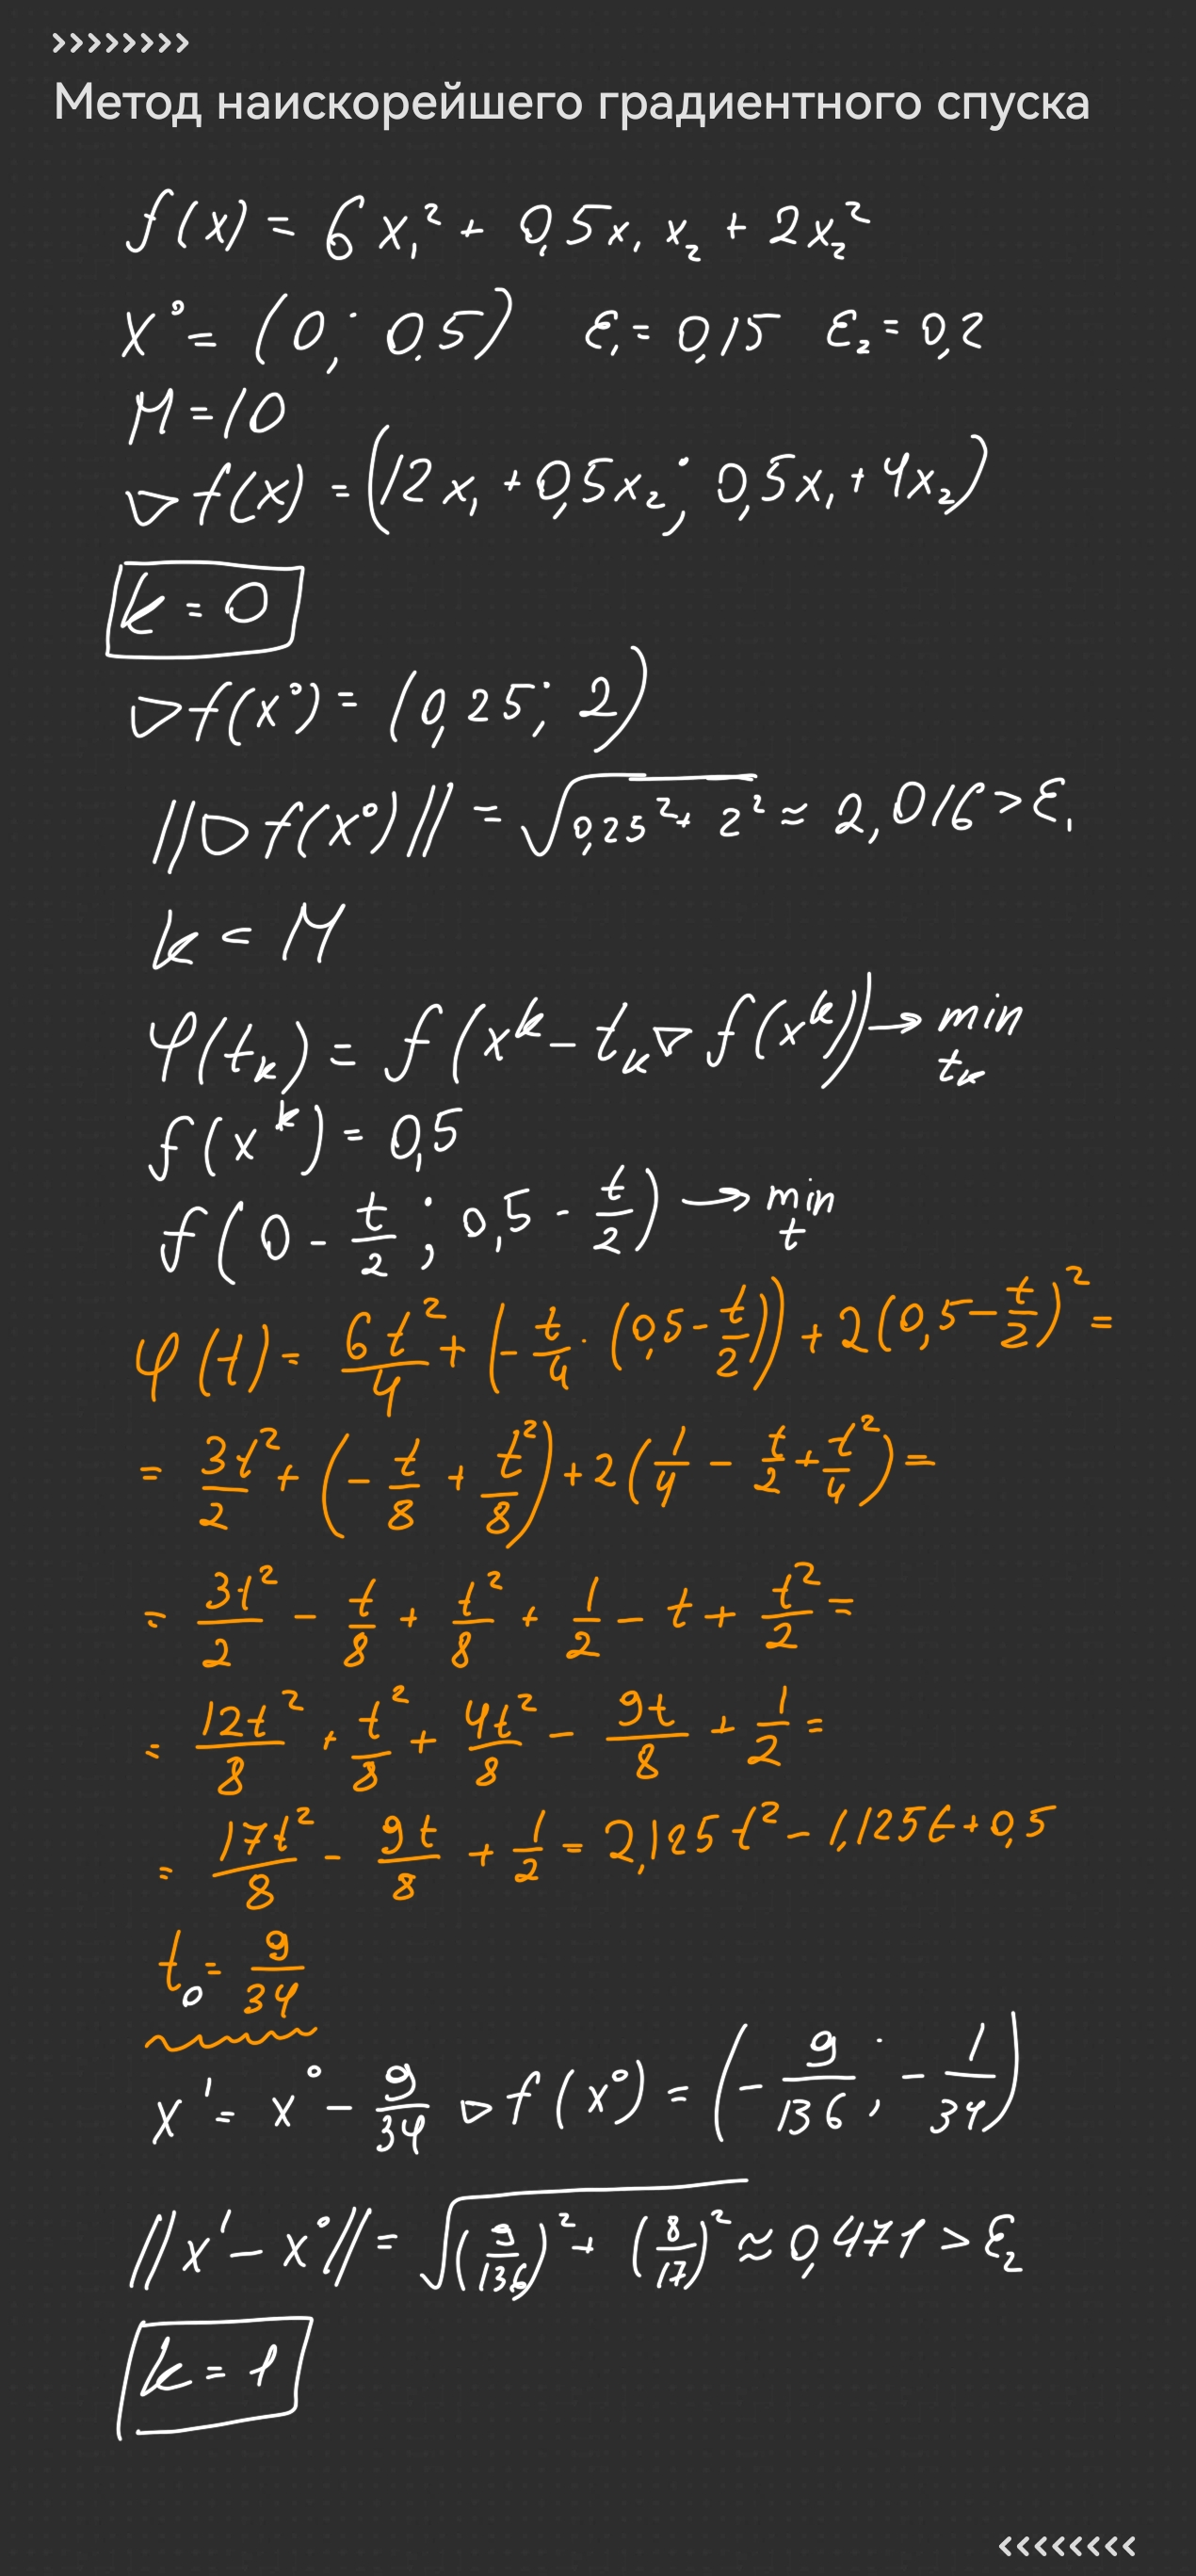 >>>>>>>>
Метод наискорейшего градиентного спуска
f(x) = 6x₁² + 0,5x₁ x₂ + 2x₂²
x⁰ = (0; 0.5) ε₁ = 0,15 ε₂ = 0,2
M = 10
▽f(x) = (12x₁ + 0,5x₂; 0,5x₁ + 4x₂)
k = 0
▽f(x⁰) = (0,25; 2)
||▽f(x⁰)|| = √(0,25² + 2²) ≈ 2,016 > ε₁
k < M
φ(tₖ) = f(xᵏ - tₖ▽f(xᵏ)) → min tₖ
f(xᵏ) = 0,5
f(0 - t/2; 0,5 - t/2) → min t
φ(t) = 6t²/4 + (-t/4 · (0,5 - t/2)) + 2(0,5 - t/2)² =
= 3t²/2 + (-t/8 + t²/8) + 2(1/4 - t/2 + t²/4) =
= 3t²/2 - t/8 + t²/8 + 1/2 - t + t²/2 =
= 12t²/8 + t²/8 + 4t²/8 - 9t/8 + 1/2 =
= 17t²/8 - 9t/8 + 1/2 = 2,125t² - 1,125t + 0,5
t₀ = 9/34
x¹ = x⁰ - 9/34 ▽f(x⁰) = (-9/136; -1/34)
||x¹ - x⁰|| = √((9/136)² + (8/17)²) ≈ 0,471 > ε₂
k = 1
<<<<<<<<